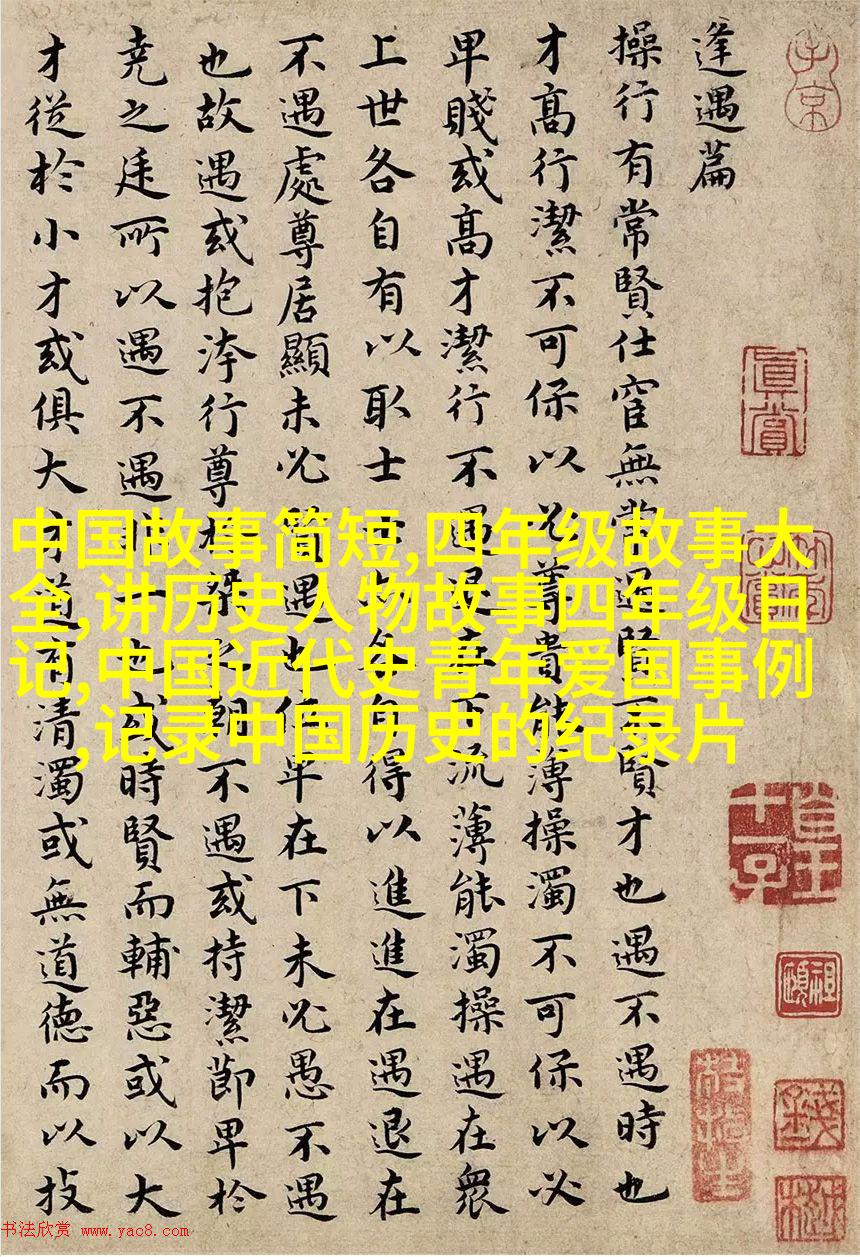 逢遇篇
操行有常賢仕宦無常遇賢不賢才也遇不遇時也
才高行潔不可保以必尊貴能薄操濁不可保以必
卑賤或高才潔行不遇退在下流薄能濁操遇在衆
上世各自有以取士士亦各自得以進進在遇退在
不遇處尊居顯未必賢遇也位卑在下未必愚不遇
也故遇或抱洿行尊於桀之朝不遇或持潔節卑於
堯之廷所以遇不遇非一也或時賢而輔惡或以大
才從於小才或俱大才道有清濁或無道德而以技
中国故事简短,四年级故事大
全,讲历史人物故事四年级日
记,中国近代史青年爱国事例
,记录中国历史的纪录片
真賞
书法欣赏 www.yac8.com